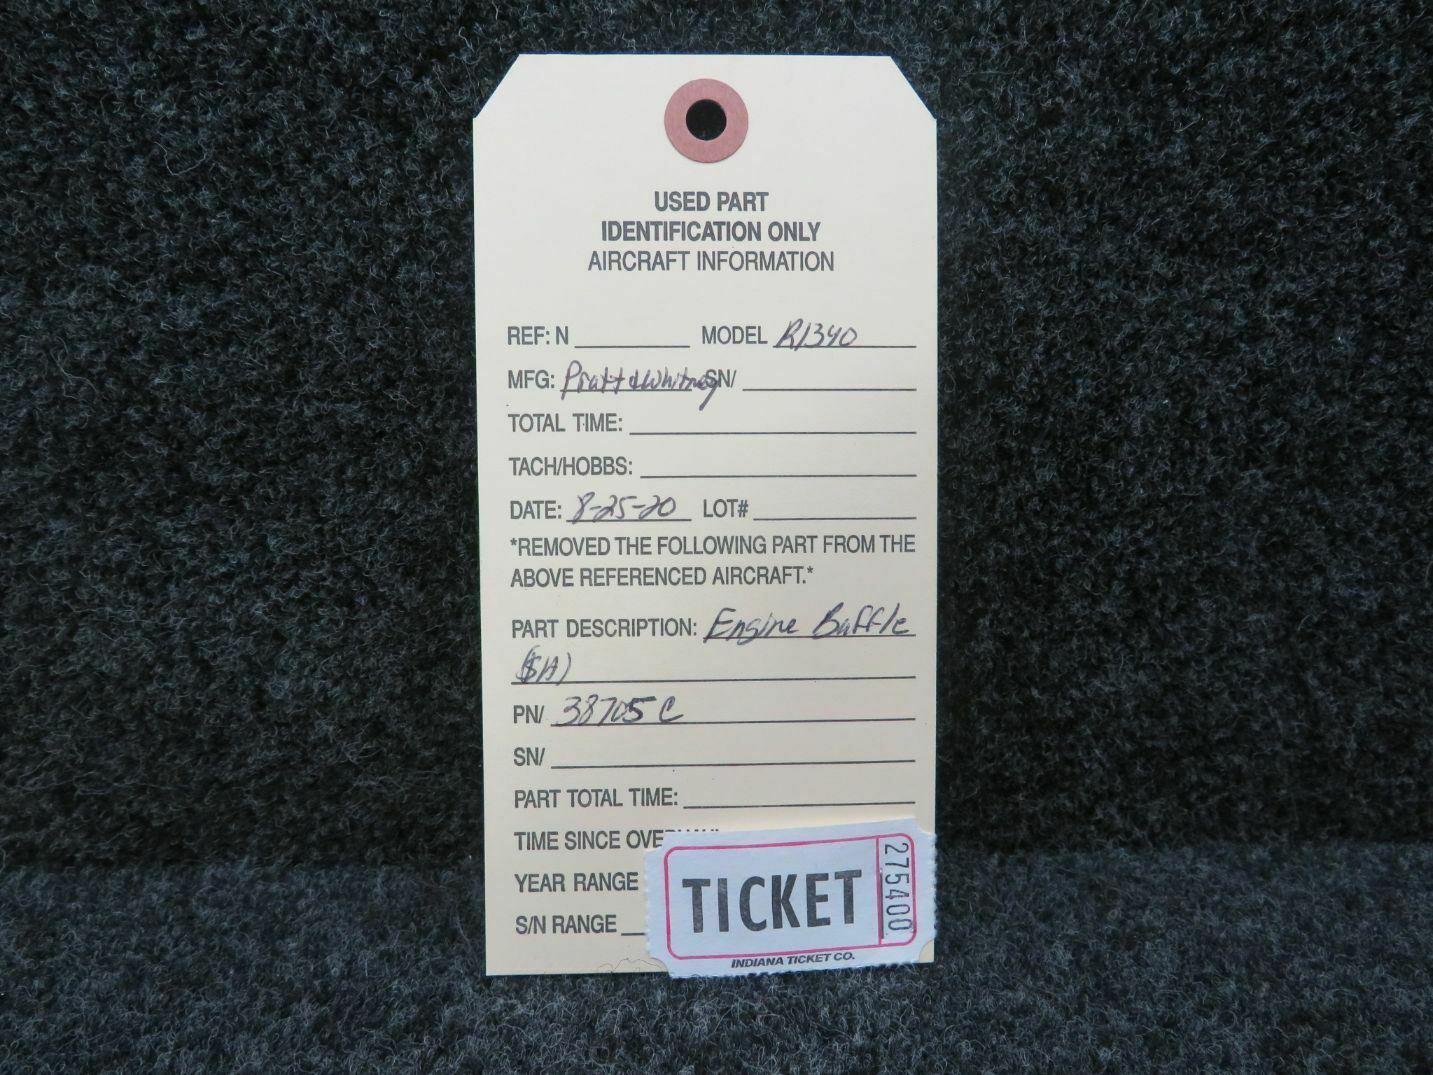 USED PART
IDENTIFICATION ONLY
AIRCRAFT INFORMATION
REF: N MODEL R1340
MFG: Pratt & Whitney SN/
TOTAL TIME:
TACH/HOBBS:
DATE: 8-25-20 LOT#
*REMOVED THE FOLLOWING PART FROM THE
ABOVE REFERENCED AIRCRAFT.*
PART DESCRIPTION: Engine Baffle
PN/ 38705C
SN/
PART TOTAL TIME:
TIME SINCE
YEAR RANGE
S/N RANGE
TICKET 275400
INDIANA TICKET CO.